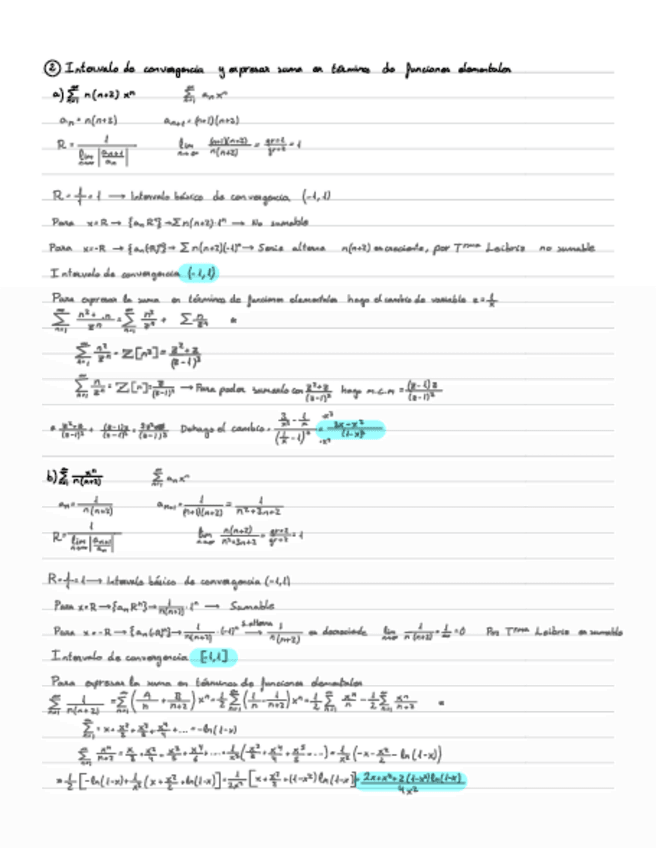 ② Intervalo de convergencia y expresar suma en términos de funciones elementales
a) ∞∑n=1 n(n+2) xⁿ ∞∑n=1 aₙxⁿ
R = 1 / lim n→∞ |aₙ₊₁/aₙ|
R = 1/1 = 1 → Intervalo básico de convergencia (-1,1)
Para x=R → {aₙRⁿ} → ∑ n(n+2)·1ⁿ → No sumable
Para x=-R → {aₙ(-R)ⁿ} → ∑ n(n+2)(-1)ⁿ → Serie alterna n(n+2) es creciente, por Tᵐᵃ Leibniz no sumable
Intervalo de convergencia (-1,1)
Para expresar la suma en términos de funciones elementales hago el cambio de variable z = 1/x
∞∑n=1 n²/zⁿ = Z[n²] = (z²+z)/(z-1)³
∞∑n=1 n/zⁿ = Z[n] = z/(z-1)² → Para poder sumarlo con (z²+z)/(z-1)³ hago m.c.m = (z-1)z/(z-1)³
Deshago el cambio = (3x-x²)/(1-x)³
b) ∞∑n=1 xⁿ/n(n+2) ∞∑n=1 aₙxⁿ
aₙ = 1/n(n+2)
R = 1 / lim n→∞ |aₙ₊₁/aₙ|
R = 1/1 = 1 → Intervalo básico de convergencia (-1,1)
Para x=R → {aₙRⁿ} → 1/n(n+2) · 1ⁿ → Sumable
Para x=-R → {aₙ(-R)ⁿ} → 1/n(n+2) · (-1)ⁿ → S.alterna 1/n(n+2) es decreciente lim n→∞ 1/n(n+2) = 1/∞ = 0 Por Tᵐᵃ Leibniz es sumable
Intervalo de convergencia [-1,1]
Para expresar la suma en términos de funciones elementales
∞∑n=1 1/n(n+2) = ∞∑n=1 (A/n + B/n+2) xⁿ = 1/2 ∞∑n=1 (1/n - 1/n+2) xⁿ = 1/2 ∞∑n=1 xⁿ/n - 1/2 ∞∑n=1 xⁿ/n+2
∞∑n=1 = x + x²/2 + x³/3 + x⁴/4 + ... = -ln(1-x)
∞∑n=1 xⁿ/n+2 = x/3 + x²/4 + x³/5 + x⁴/6 + ... = 1/x² (x³/3 + x⁴/4 + x⁵/5 + ...) = 1/x² (-x - x²/2 - ln(1-x))
= 1/2 [-ln(1-x) + 1/x² (x + x²/2 + ln(1-x))] = 1/2x² [x + x²/2 + (1-x²) ln(1-x)] = (2x+x²+2(1-x²)ln(1-x))/4x²